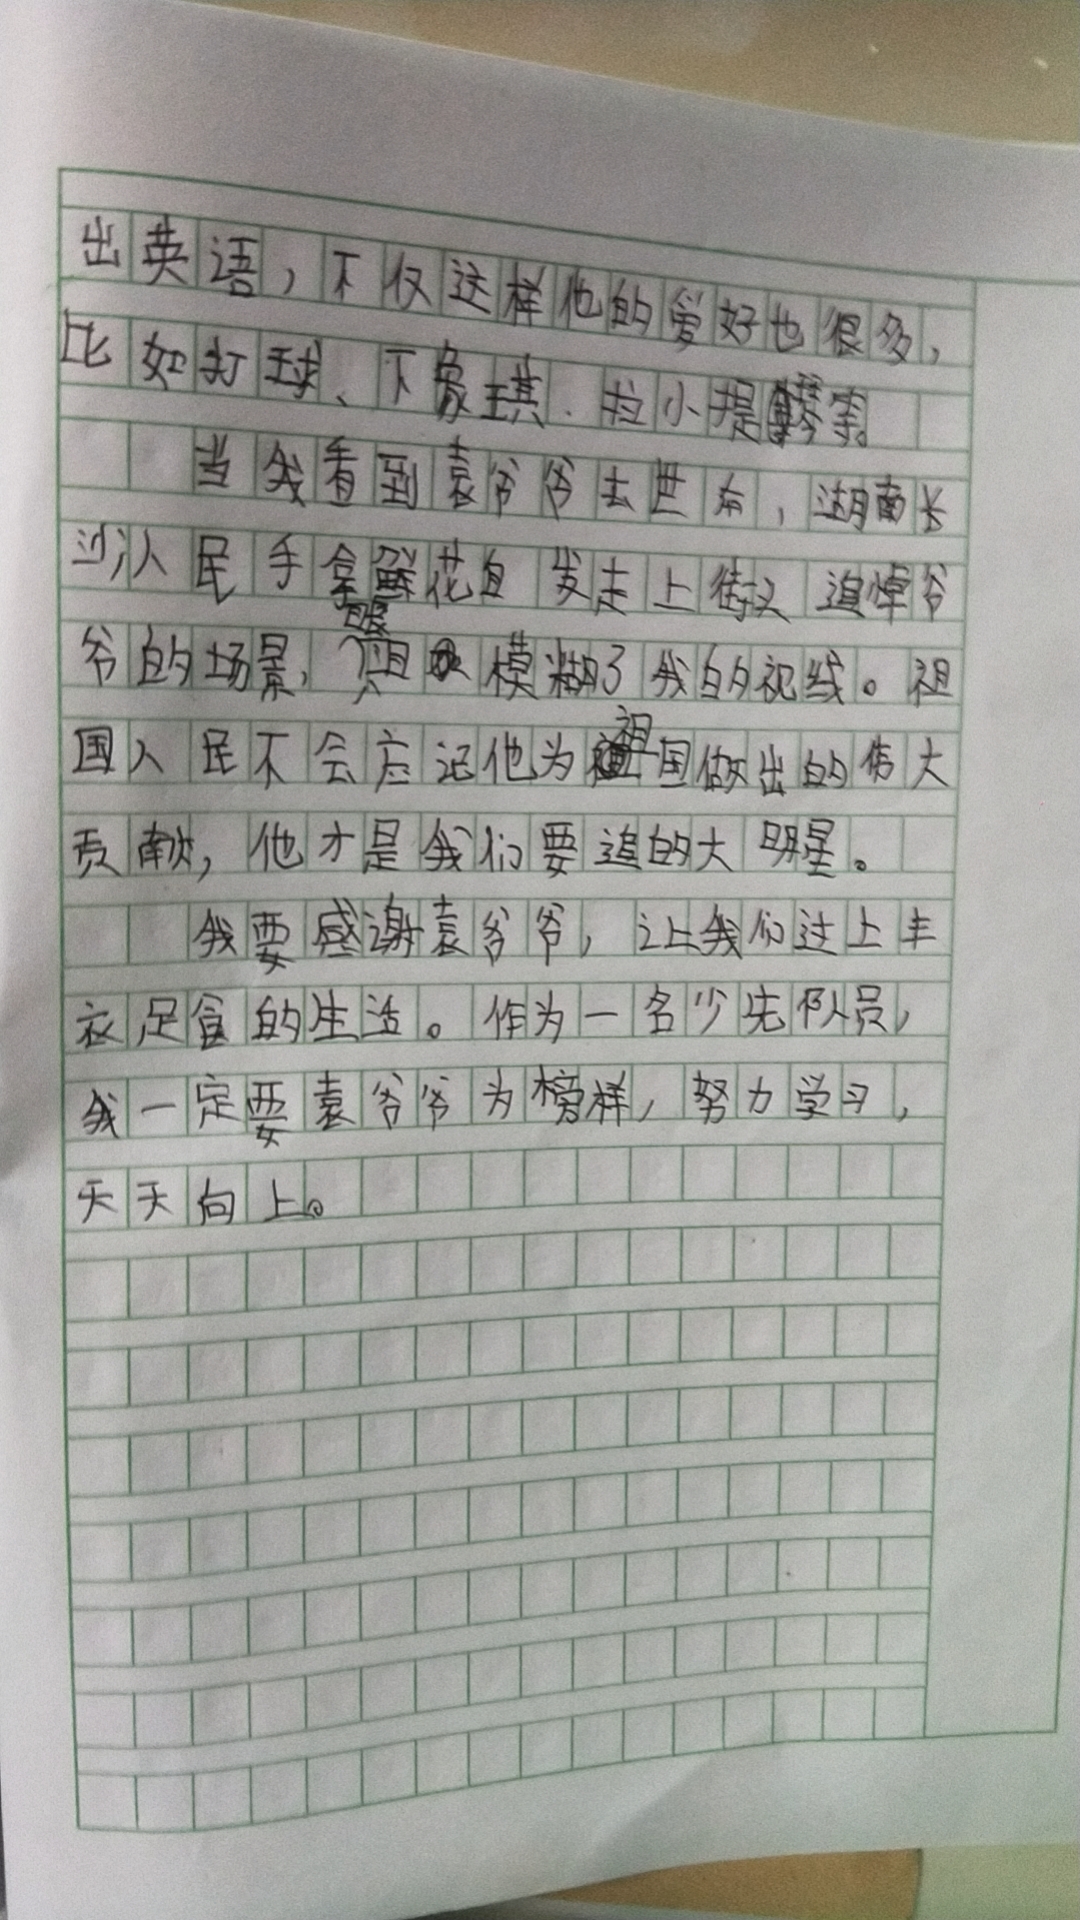 出英语，不仅这样他的爱好也很多，
比如打球、下象棋、拉小提琴等。
当我看到袁爷爷去世后，湖南长
沙人民手拿鲜花自发走上街头追悼爷
爷的场景，眼泪模糊了我的视线。祖
国人民不会忘记他为祖国做出的伟大
贡献，他才是我们要追的大明星。
我要感谢袁爷爷，让我们过上丰
衣足食的生活。作为一名少先队员，
我一定要袁爷爷为榜样，努力学习，
天天向上。